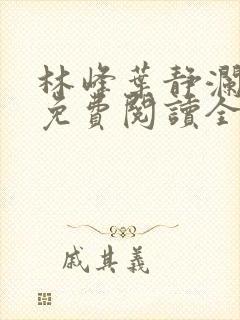 林峰葉靜瀾
免費閱讀全
戚其義